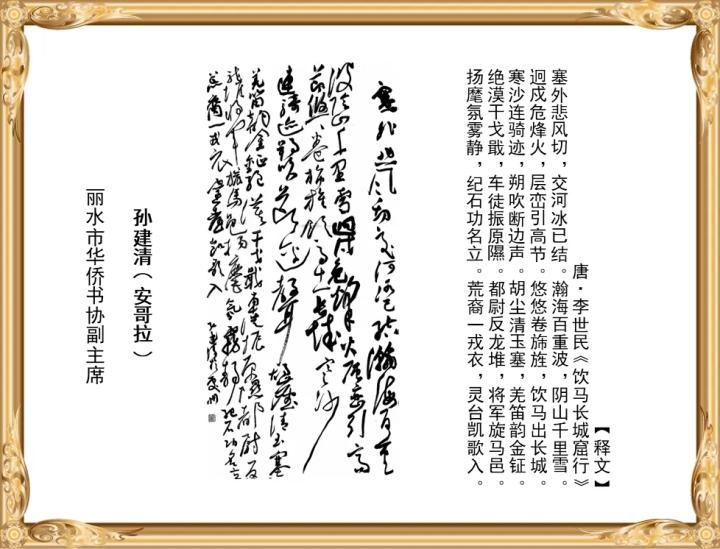 【释文】
唐·李世民《饮马长城窟行》
塞外悲风切，交河冰已结。瀚海百重波，阴山千里雪。
迥戍危烽火，层峦引高节。悠悠卷旆旌，饮马出长城。
寒沙连骑迹，朔吹断边声。胡尘清玉塞，羌笛韵金钲。
绝漠干戈戢，车徒振原隰。都尉反龙堆，将军旋马邑。
扬麾氛雾静，纪石功名立。荒裔一戎衣，灵台凯歌入。
塞外悲风切交河冰已结瀚海百重
波阴山千里雪迥戍危烽火层峦引高
节悠悠卷旆旌饮马出长城寒沙
连骑迹朔吹断边声胡尘清玉塞
羌笛韵金钲绝漠干戈戢车徒振原隰都尉反
龙堆将军旋马邑扬麾氛雾静纪石功名立
荒裔一戎衣灵台凯歌入
孙建清（安哥拉）
丽水市华侨书协副主席